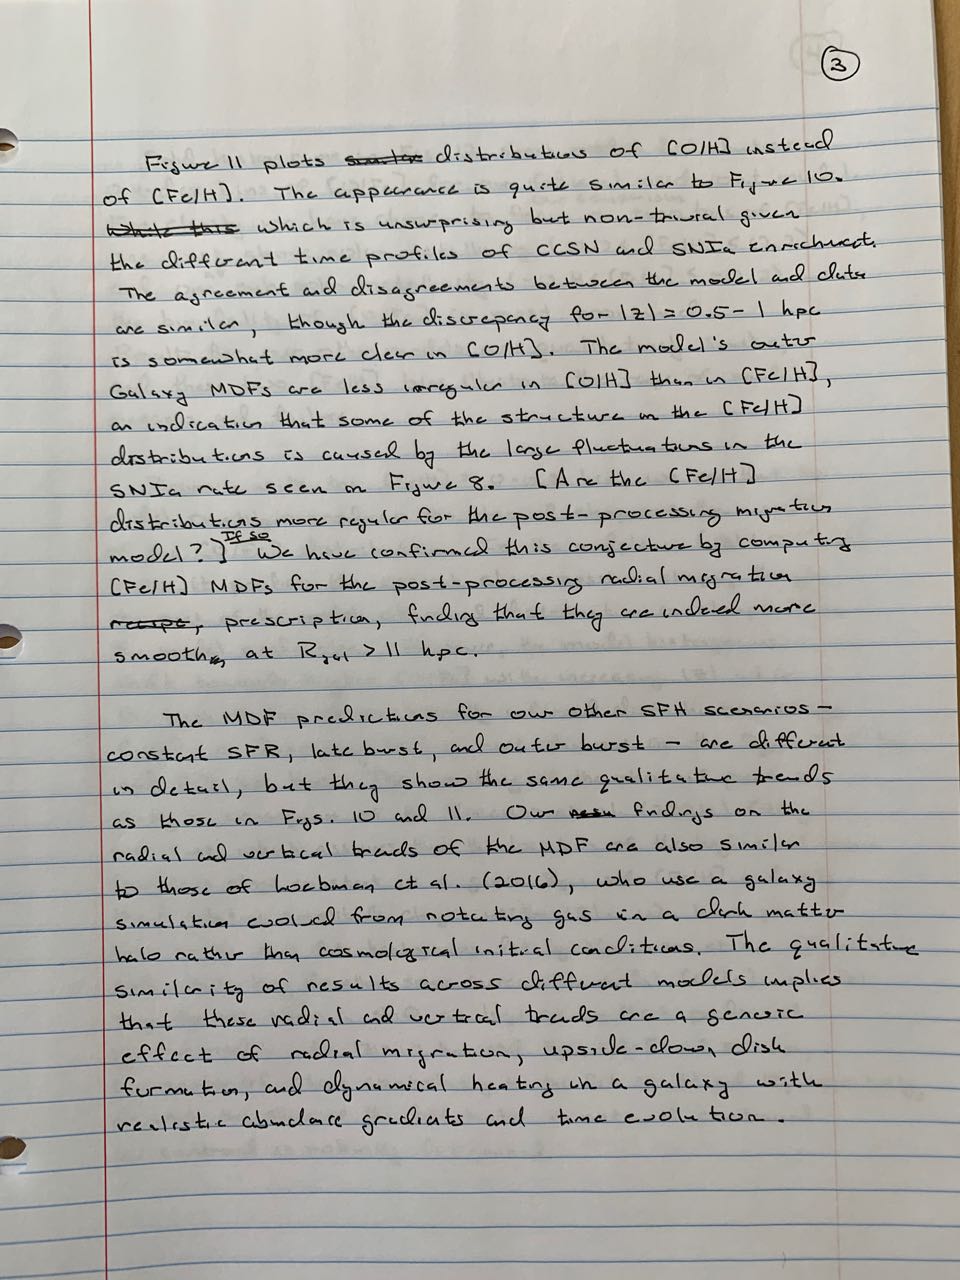 3
Figure 11 plots distributions of [O/H] instead
of [Fe/H]. The appearance is quite similar to Figure 10.
While this which is unsurprising but non-trivial given
the different time profiles of CCSN and SNIa enrichment.
The agreement and disagreements between the model and data
are similar, though the discrepancy for |z| = 0.5-1 kpc
is somewhat more clear in [O/H]. The model's outer
Galaxy MDFs are less irregular in [O/H] than in [Fe/H],
an indication that some of the structure in the [Fe/H]
distributions is caused by the large fluctuations in the
SNIa rate seen in Figure 8. [Are the [Fe/H]
distributions more regular for the post-processing migration
model?] If so We have confirmed this conjecture by computing
[Fe/H] MDFs for the post-processing radial migration
recipe, prescription, finding that they are indeed more
smooth, at Rgal > 11 kpc.
The MDF predictions for our other SFH scenarios -
constant SFR, late burst, and outer burst - are different
in detail, but they show the same qualitative trends
as those in Figs. 10 and 11. Our findings on the
radial and vertical trends of the MDF are also similar
to those of Loebman et al. (2016), who use a galaxy
simulation evolved from rotating gas in a dark matter
halo rather than cosmological initial conditions. The qualitative
similarity of results across different models implies
that these radial and vertical trends are a generic
effect of radial migration, upside-down disk
formation, and dynamical heating in a galaxy with
realistic abundance gradients and time evolution.